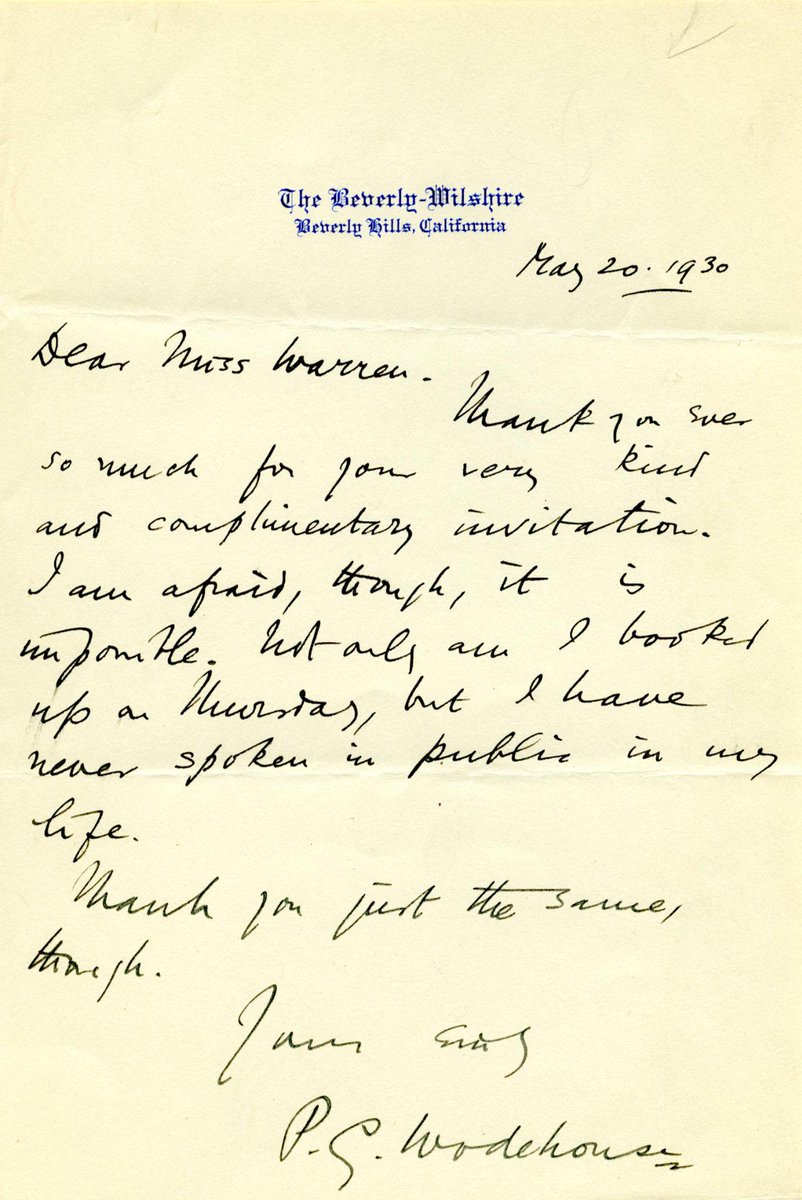 The Beverly-Wilshire
Beverly Hills, California
May 20. 1930
Dear Miss Warren.
Thank you ever
so much for your very kind
and complimentary invitation.
I am afraid, though, it is
impossible. Not only am I booked
up on Thursday, but I have
never spoken in public in my
life.
Thank you just the same,
though.
Yours
P.G. Wodehouse